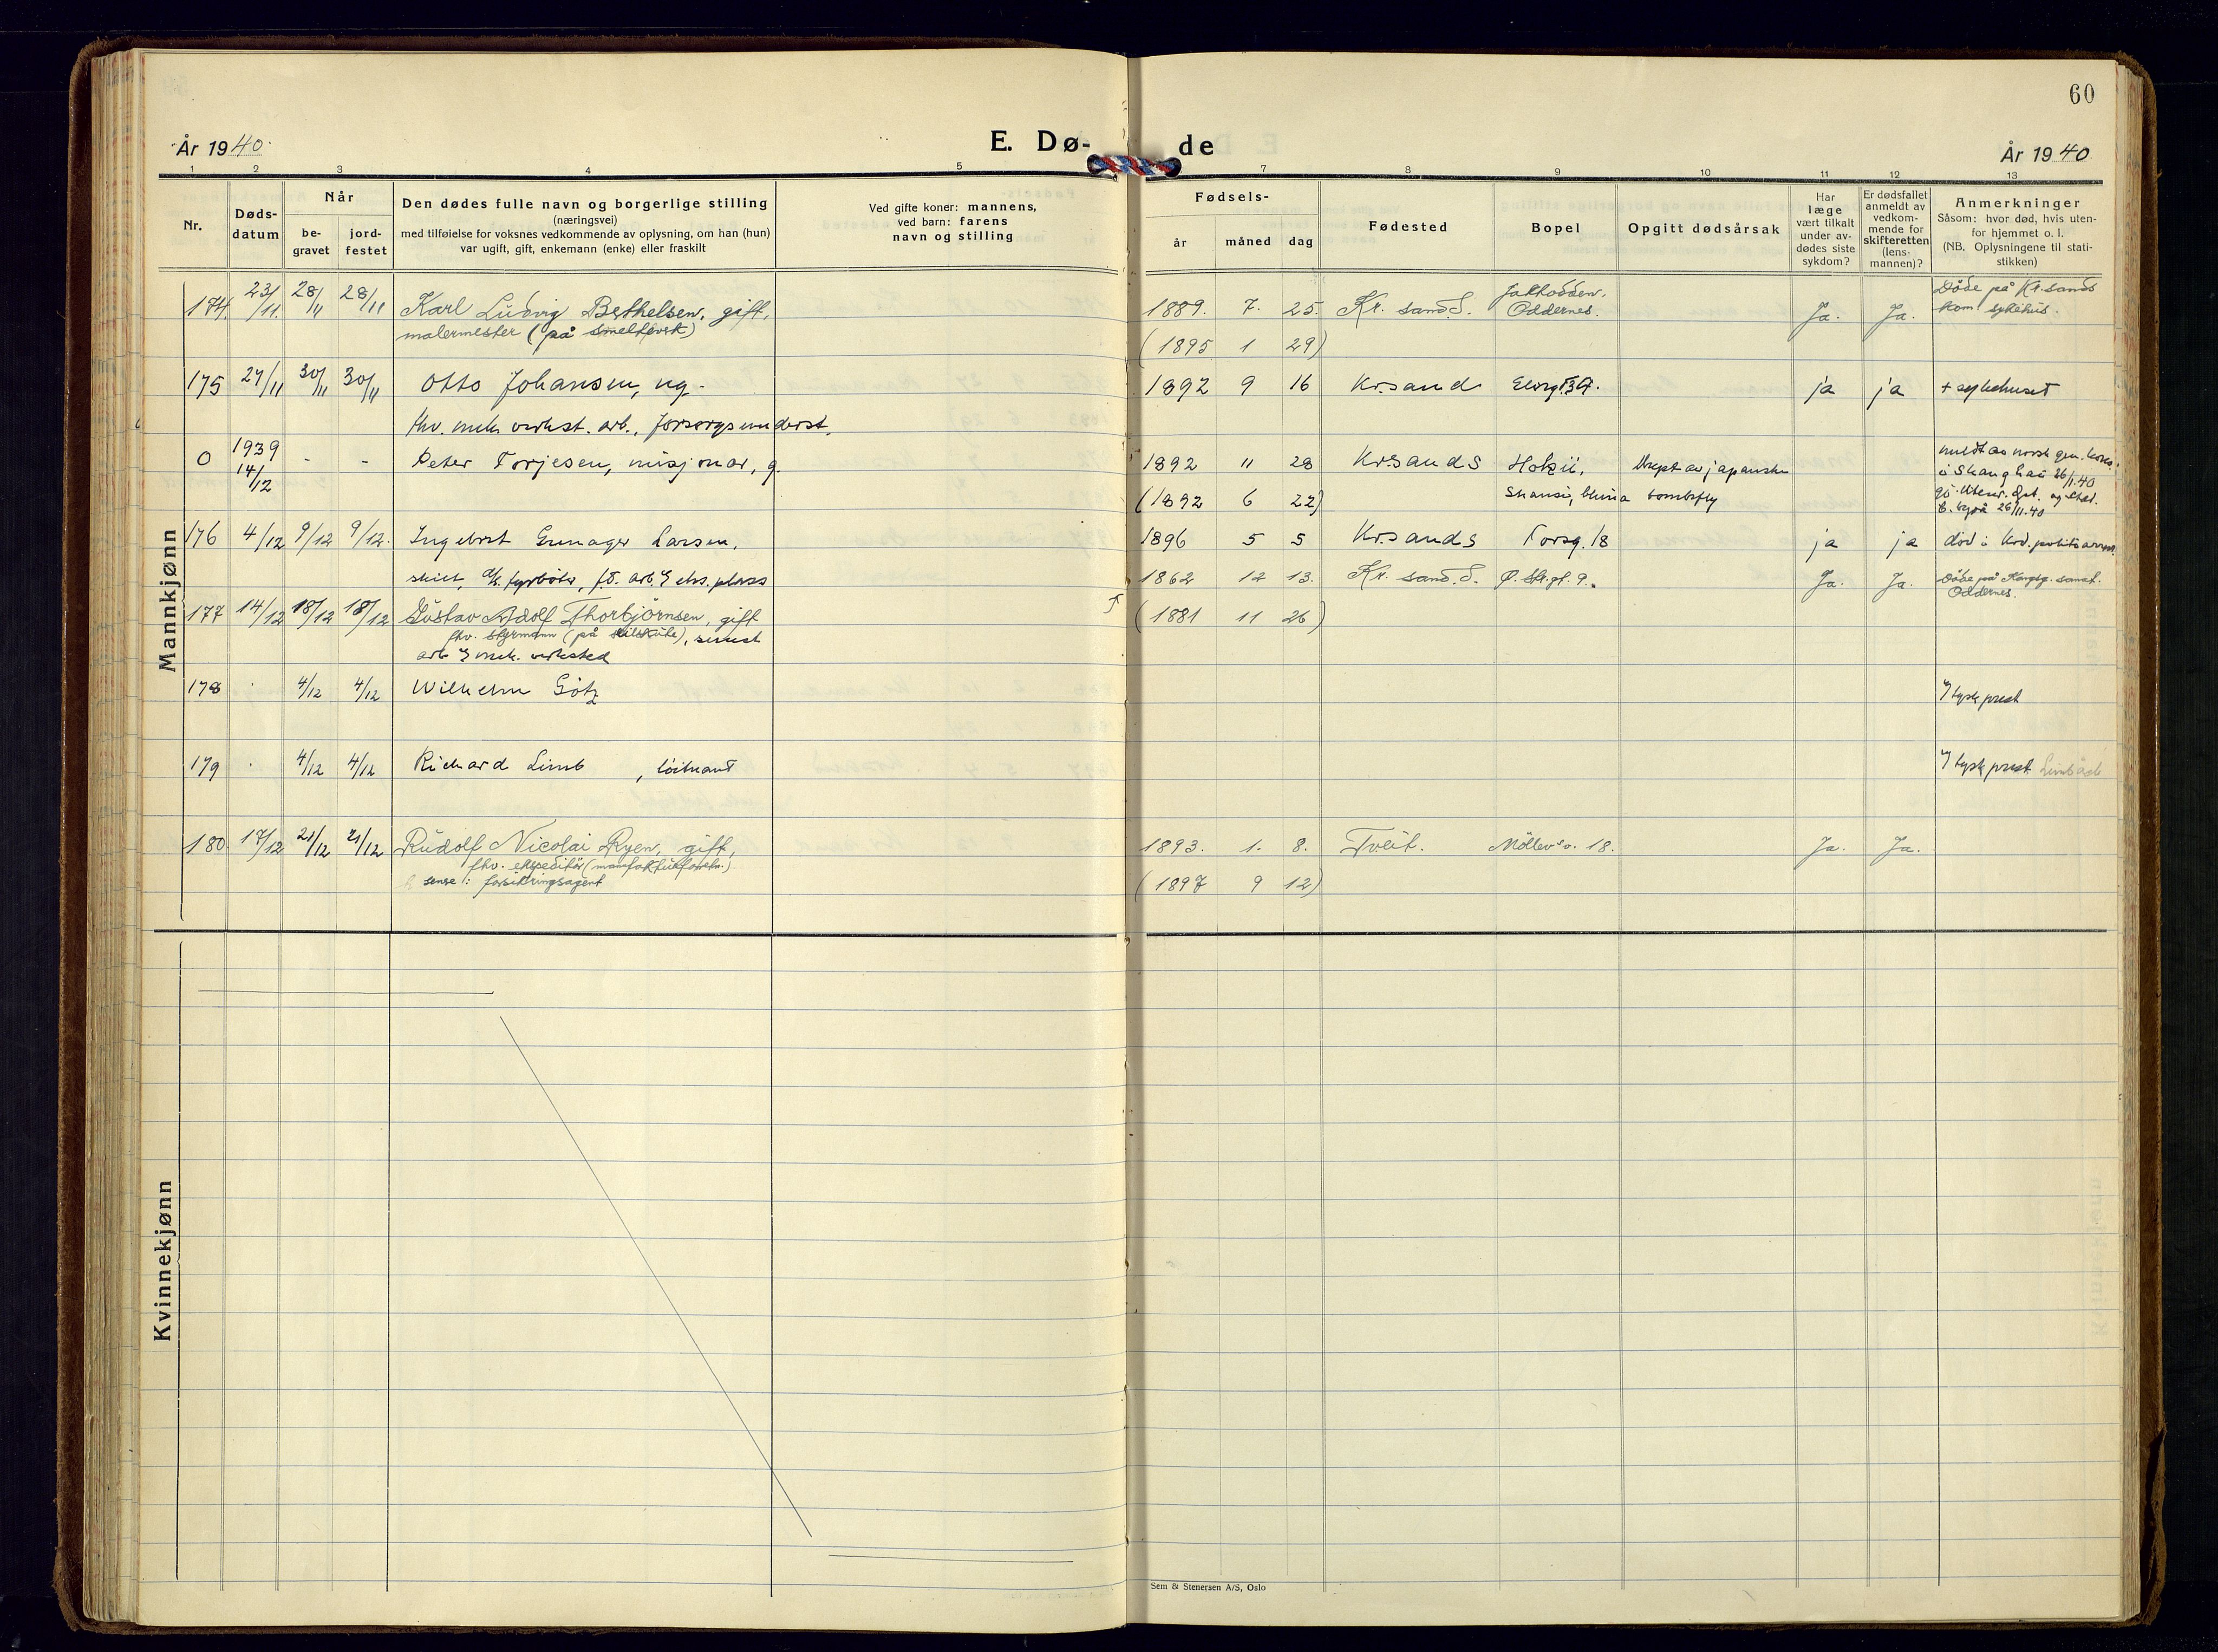 60
År 1940.
E. Dø-
de
År 1940
1 2 3 4 5 7 8 9 10 11 12 13
Nr.
Døds-
datum
Når
be-
gravet
jord-
festet
Den dødes fulle navn og borgerlige stilling
(næringsvei)
med tilføielse for voksnes vedkommende av oplysning, om han (hun)
var ugift, gift, enkemann (enke) eller fraskilt
Ved gifte koner: mannens,
ved barn: farens
navn og stilling
Fødsels-
år måned dag
Fødested
Bopel
Opgitt dødsårsak
Har
læge
vært tilkalt
under av-
dødes siste
sykdom?
Er dødsfallet
anmeldt av
vedkom-
mende for
skifteretten
(lens-
mannen)?
Anmerkninger
Såsom: hvor død, hvis uten-
for hjemmet o. l.
(NB. Oplysningene til stati-
stikken)
Mannkjønn
174. 23/11. 28/11 28/11 Karl Ludvig Berthelsen, gift, 1889. 7. 25. Kr. sand S. Oddernes. Ja. Ja. Döde på Kr.sands
malermester (på kom sykehus.
(1895 1 29)
175 27/11 30/11 30/11 Otto Johansen, ug. 1892 9 16 Kr.sand ja ja + sykehuset
fhv. mek. verkst. arb., forsorgsunderst.
0 1939 14/12 - - Peter Torjesen, misjonær, g. 1892 11 28 Kr.sands Hokü, Drept av japanske meldt av norsk gen. kons.
i Shanghai 26/1.40
(1892 6 22) Shansi, China bombefly
26/11.40
176 4/12 9/12 9/12. Ingebret Larsen, 1896 5 5 Kr.sands Torsg. 18 ja ja død i
skilt, fyrbøter,
177 14/12 18/12 18/12 Gustav Adolf Thorbjörnsen, gift 1862 12 13. Kr. sand. S. Ja. Ja. Döde på
Oddernes.
fhv. styrmann (på seilskute), senest (1881 11 26)
arb. mek. verksted
178 . 4/12 4/12 Wilhelm Götz tysk prest
179 . 4/12 4/12 Richard Limb , löitnant tysk prest Limbach
180. 17/12 21/12 21/12 Rudolf Nicolai Ryen, gift, 1893. 1. 8. Tveit. Möllev. 18. Ja. Ja.
fhv. ekspeditör (manufakturforretn.)
senere: forsikringsagent (1897 9 12)
Kvinnekjønn
Sem & Stenersen A/S, Oslo